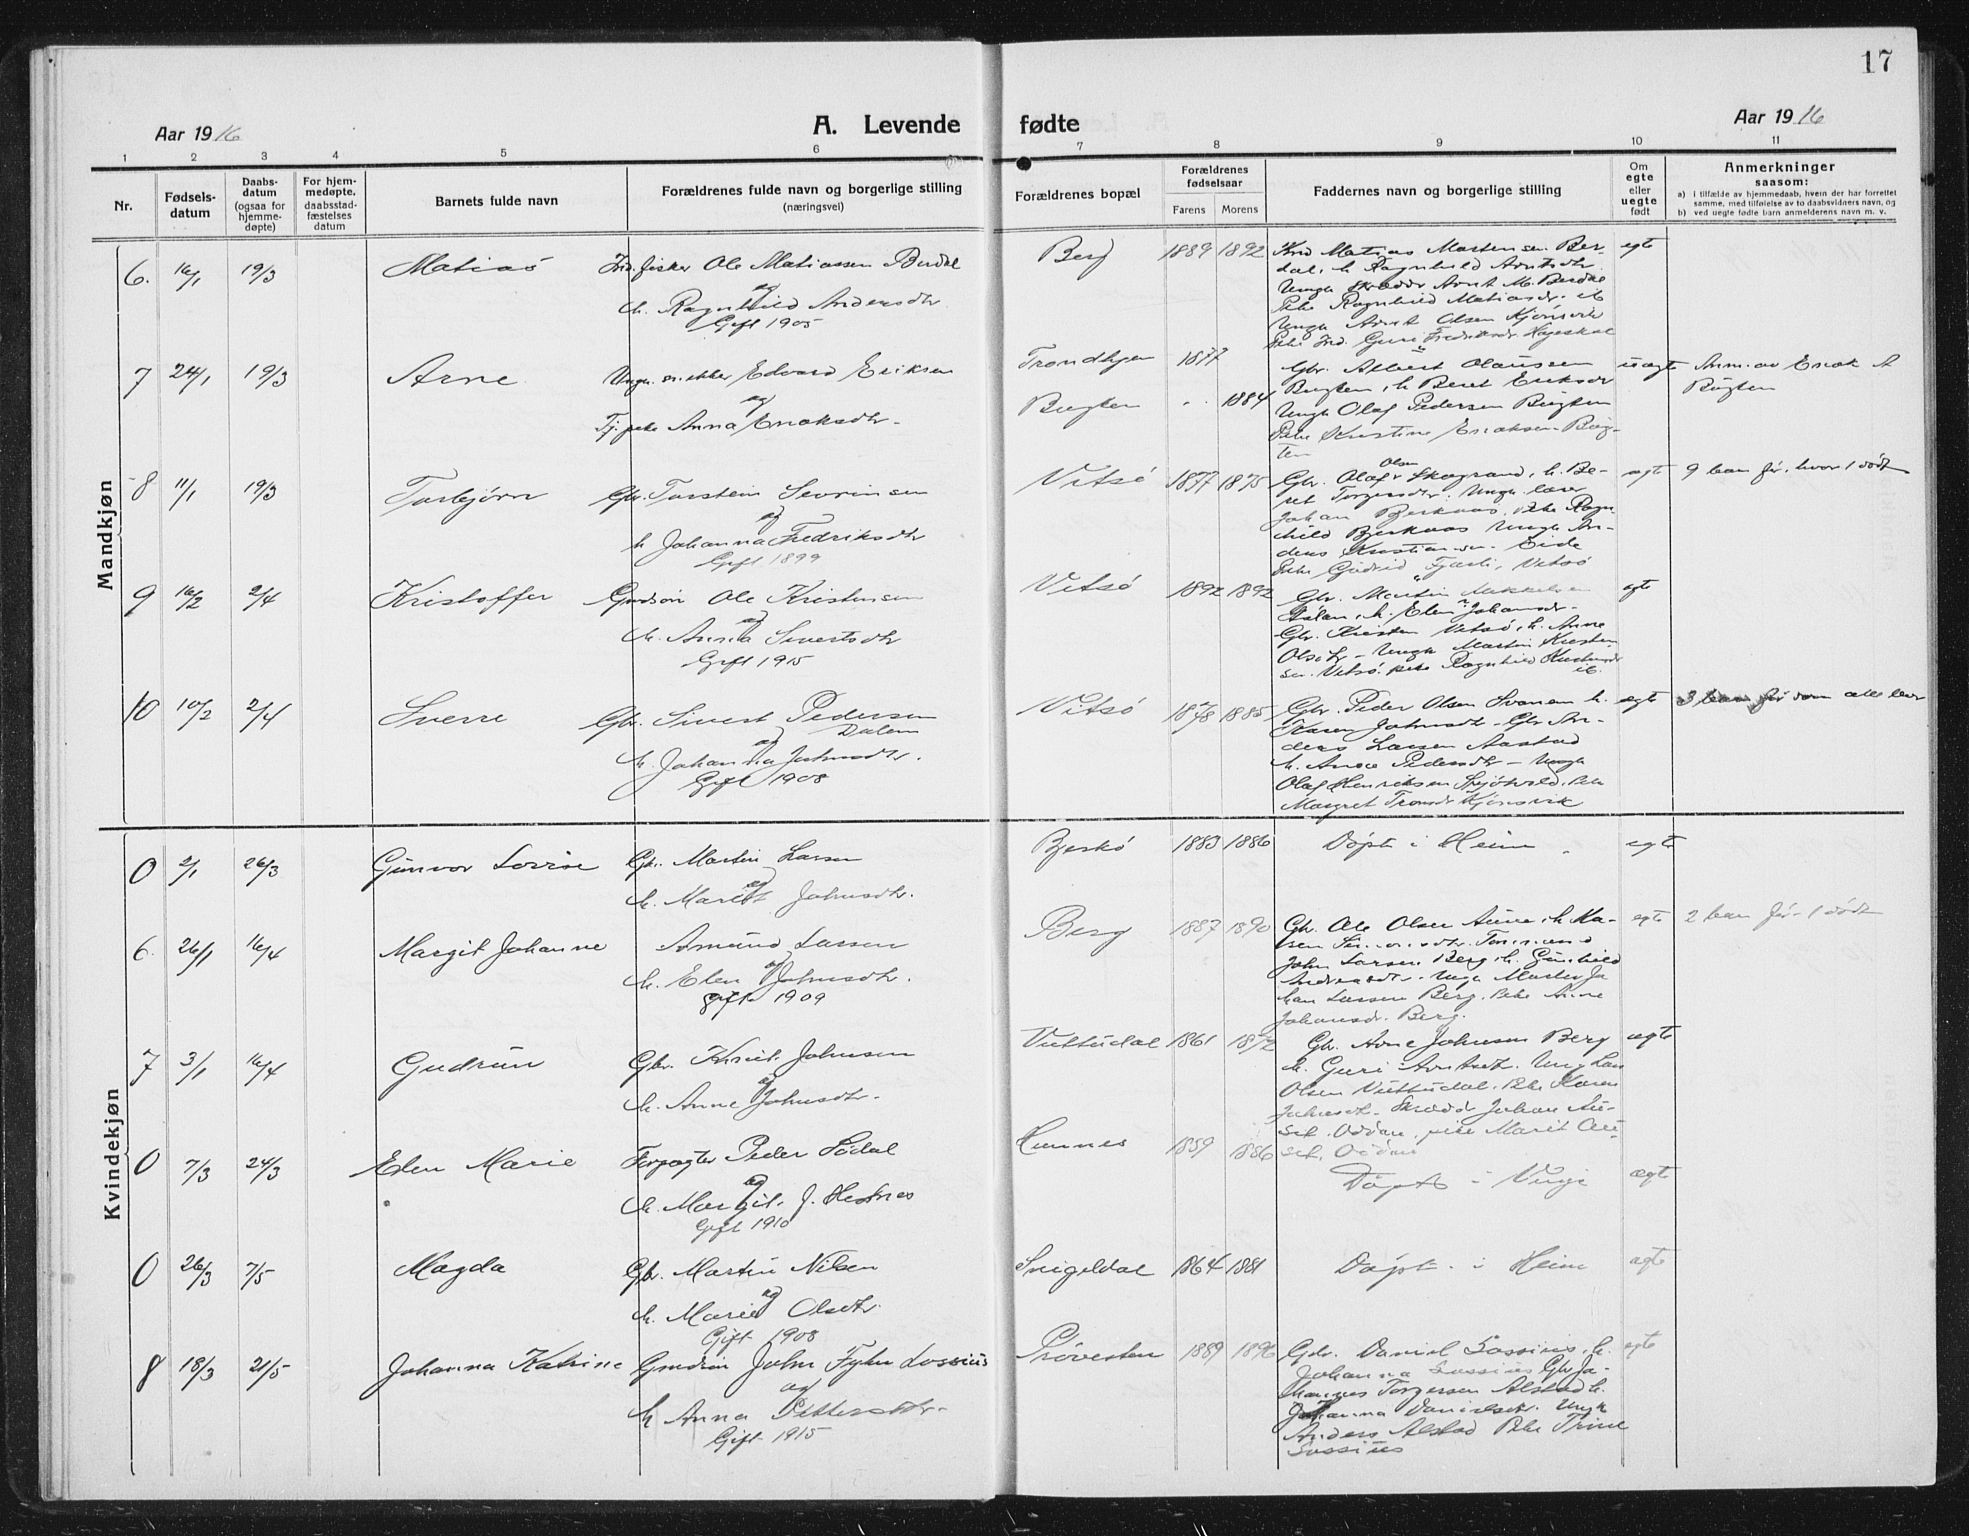 17
Aar 1916
A. Levende fødte
Aar 1916
1 2 3 4 5 6 7 8 9 10 11
Nr.
Fødsels-
datum
Daabs-
datum
(ogsaa for
hjemme-
døpte)
For hjem-
medøpte,
daabsstad-
fæstelses
datum
Barnets fulde navn
Forældrenes fulde navn og borgerlige stilling
(næringsvei)
Forældrenes bopæl
Forældrenes
fødselsaar
Farens Morens
Faddernes navn og borgerlige stilling
Om
egte
eller
uegte
født
Anmerkninger
saasom:
a) i tilfælde av hjemmedaab, hvem der har forrettet
samme, med tilføielse av to daabsvidners navn, og
b) ved uegte fødte barn anmelderens navn m. v.
Mandkjøn
6. 16/1 19/3 Matias
Ind. fisker Ole Matiassen Berdal
og
h. Ragnhild Andersdtr.
Gift 1905
Berg 1889 1892
Ind Matias Martensen Ber-
dal, h. Ragnhild Arntsdtr.
Ungk skrædder Arnt M. Berdal
Pike Ragnhild Matiasdr. ib
Ungk Arnt Olsen Kjønsvik
Pike Ind. Guri Fredriksdr Hageskal
egte
7 24/1 19/3 Arne
Ungk. snekker Edvard Eriksen
og
Tj. pike Anna Enoksdtr.
Trondhjem 1877
Bugten 1884
Gbr. Albert Olaussen
Bugten, h. Beret Eriksdr
Ungk Olaf Pedersen Bugten
Pike Kristine Enoksen Bug-
ten
uægte
Anm. av Enok A
Bugten
8 11/1 19/3 Torbjørn
Gbr. Torstein Sevrinsen
og
h. Johanna Fredriksdtr
Gift 1899
Vitsø 1877 1875
Olsen
Gbr. Olaf Skogrand, h. Be-
ret Torgersdtr. Ungk. lærer
Johan Bjerkaas, Pike Ragn-
hild Bjerkaas Ungk An-
ders Kristiansen Eide
Pike Gudrid Fjærli, Vitsø
ægte
9 barn før, hvor 1 dødt
9 16/2 2/4 Kristoffer
Grdsøn Ole Kristensen
og
h. Anna Sivertsdtr
Gift 1915
Vitsø 1892 1892
Gbr. Martin Mikkelsen
h. Elen Johansdr.
Gbr. Kristen Vitsø, h. Anne
Olsdtr - Ungk Martin Kristen-
sen Vitsø. Pike Ragnhild Kristensdr
ib.
egte
10 10/2 2/4 Sverre
Gbr. Sivert Pedersen
Dalem
og
h. Johanna Johnsdtr.
Gift 1908
Vitsø 1878 1885
Gbr. Peder Olsen Svanem h.
Karen Johnsdtr - Gbr An-
ders Larsen Aastad
h. Anne Pedersdtr - Ungk
Olaf Henriksen Skjølvold. Pike
Margret Tronsdr Kjønsvik
egte
3 barn før som alle lever
Kvindekjøn
0 2/1 26/3 Gunvor Lovise
Gbr. Martin Larsen
og
h. Marit Johnsdtr.
Bjerkø 1883 1886
Døpt i Heim
egte
6. 26/1 16/4 Margit Johanne
Amund Larsen
og
h. Elen Johnsdtr.
gift 1909
Berg 1887 1890
Gbr. Ole Olsen Aune, h. Ka-
ren
John Larsen Berg, h. Gunhild
Andreasdtr. Ungk Martin Jo
han Larsen Berg. Pike Anne
Johansdr. Berg.
egte
2 barn før - 1 dødt
7 3/1 16/4 Gudrun
Gbr. Knut Johnsen
og
h. Anne Johnsdtr.
Vuttudal 1861 1872
Gbr. Arne Johnsen Berg
h. Guri Arntsdt. Ung Lars
Olsen Vuttudal. Pike Karen
Johnsdt. Skrædd Johan Au-
set. Oddan, pike Marit Au-
set, Oddan
ægte
0 7/3 24/3 Elen Marie
Forpagter Peder Sødal
og
h. Margit. J. Hestnes
Gift 1910
Hemnes 1859 1886
Døpt i Vinje
ægte
0 26/3 7/5 Magda
Gbr. Martin Nilsen
og
h. Marie Olsdtr.
Gift 1908
Snigeldal 1864 1881
Døpt i Heim
ægte
8 18/3 21/5 Johanna Katrine
Grndsøn John Fyhn Lossius
og
h. Anna Pettersdtr.
Gift 1915
Prøvesten 1889 1896
Gbr. Daniel Lossius, h.
Johanna Lossius Gbr Jo-
hannes Torgersen Alstad h.
Johanna Danielsdr. Ungk
Anders Alstad Pike Trine
Lossius
egte